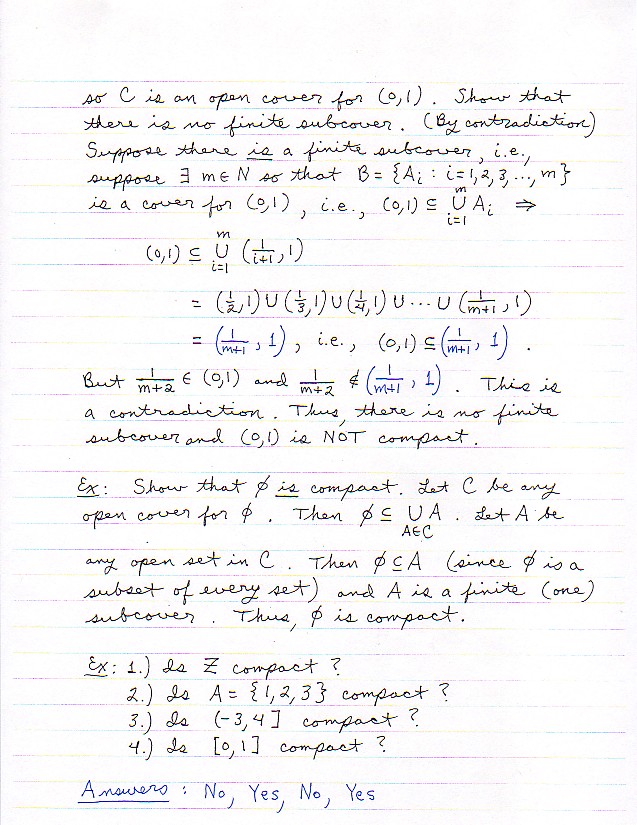 so C is an open cover for (0,1). Show that
there is no finite subcover. (By contradiction)
Suppose there is a finite subcover, i.e.,
suppose ∃ m ∈ N so that B = {A_i : i=1,2,3,...,m}
is a cover for (0,1), i.e., (0,1) ⊆ ∪_{i=1}^{m} A_i ⇒
(0,1) ⊆ ∪_{i=1}^{m} (1/(i+1), 1)
= (1/2, 1) ∪ (1/3, 1) ∪ (1/4, 1) ∪ ··· ∪ (1/(m+1), 1)
= (1/(m+1), 1), i.e., (0,1) ⊆ (1/(m+1), 1).
But 1/(m+2) ∈ (0,1) and 1/(m+2) ∉ (1/(m+1), 1). This is
a contradiction. Thus, there is no finite
subcover and (0,1) is NOT compact.
Ex: Show that ∅ is compact. Let C be any
open cover for ∅. Then ∅ ⊆ ∪_{A∈C} A. Let A be
any open set in C. Then ∅ ⊆ A (since ∅ is a
subset of every set) and A is a finite (one)
subcover. Thus, ∅ is compact.
Ex: 1.) Is Z compact?
2.) Is A = {1,2,3} compact?
3.) Is (-3,4] compact?
4.) Is [0,1] compact?
Answers: No, Yes, No, Yes